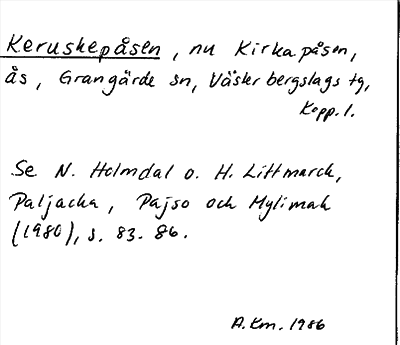 Keruskepåsen, nu Kirkapåsen,
ås, Grangärde sn, Västerbergslags tg,
Kopp. l.
Se N. Holmdal o. H. Littmarck,
Paljacka, Pajso och Mylimak
(1980), s. 83-86.
A.Km. 1986